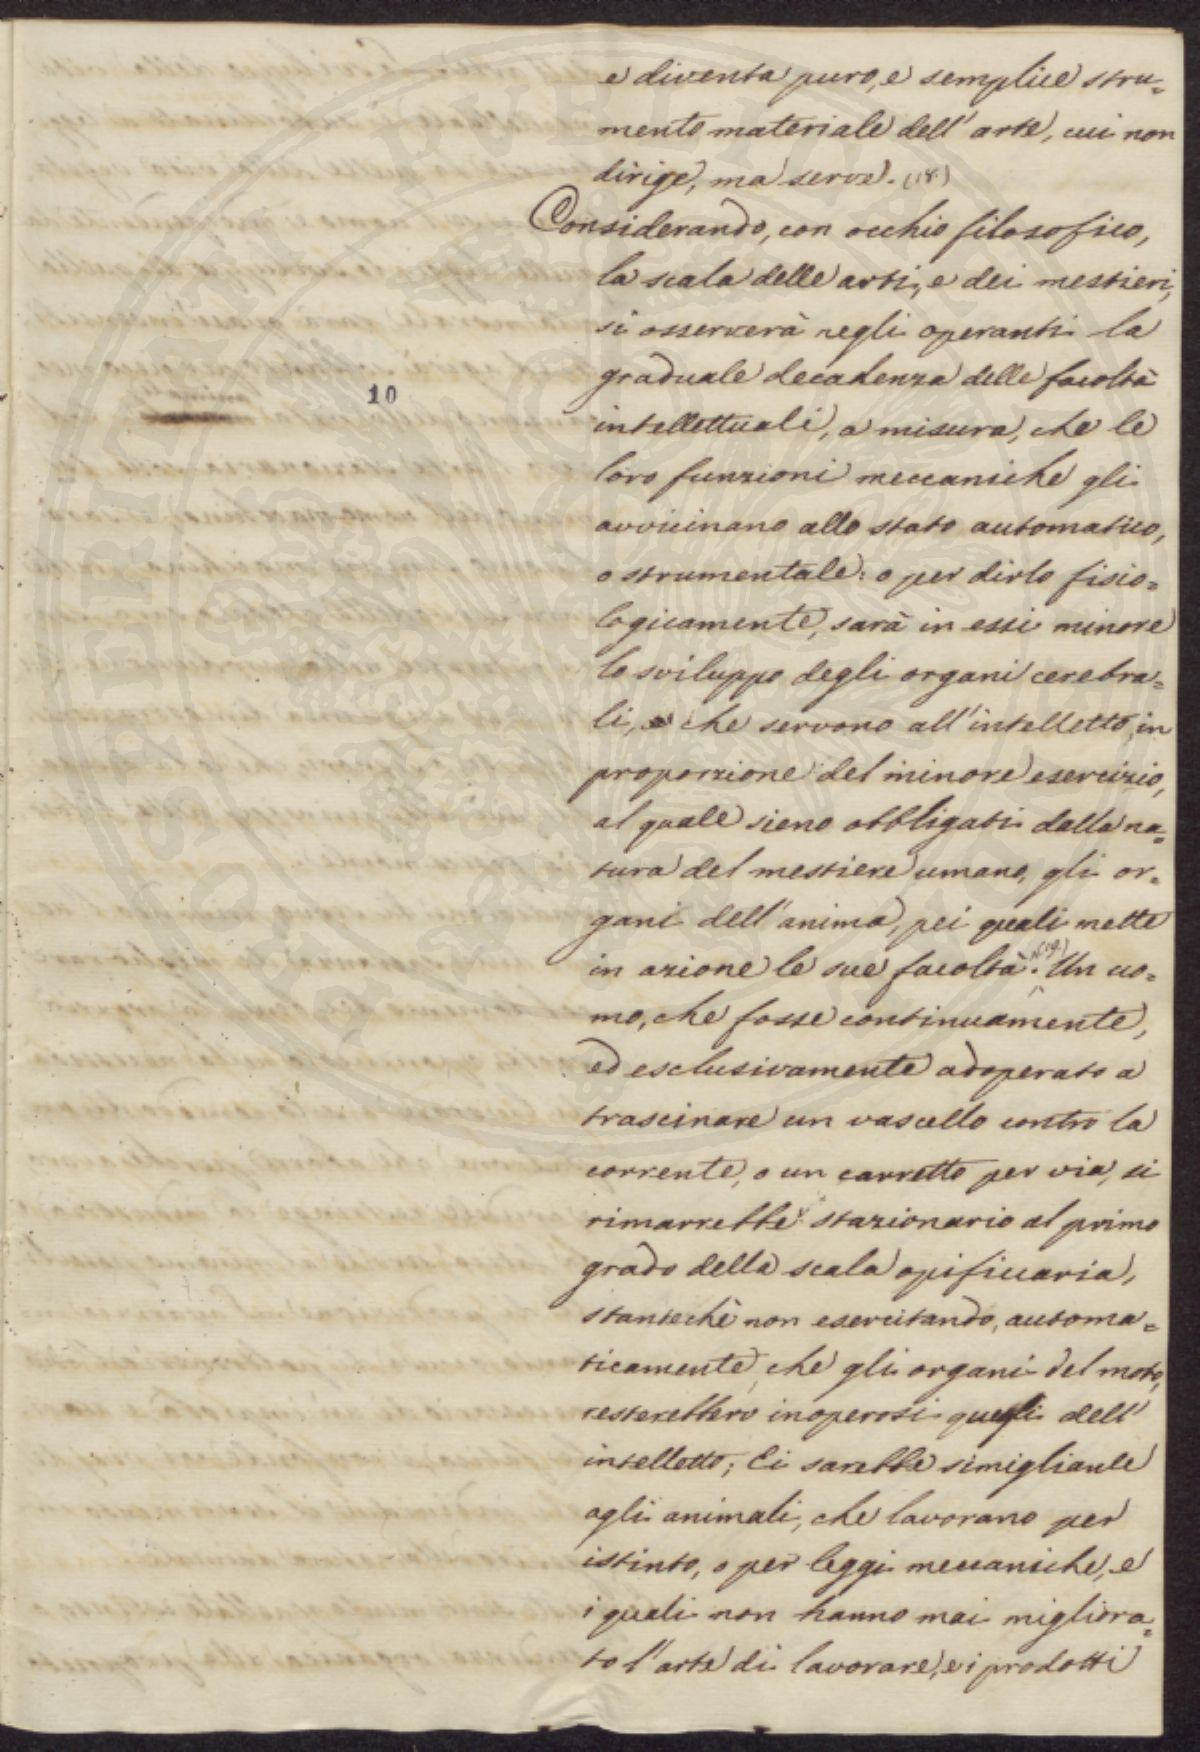 e diventa puro, e semplice stru=
mento materiale dell'arte, cui non
dirige, ma serve. (18)
Considerando, con occhio filosofico,
la scala delle arti, e dei mestieri,
si osserverà negli operanti la
graduale decadenza delle facoltà
10
intellettuali, a misura, che le
loro funzioni meccaniche gli
avvicinano allo stato automatico,
o strumentale: o per dirlo fisio=
logicamente, sarà in essi minore
lo sviluppo degli organi cerebra=
li, che servono all'intelletto, in
proporzione del minore esercizio,
al quale sieno obbligati dalla na=
tura del mestiere umano, gli or=
gani dell'anima, pei quali mette
in azione le sue facoltà. Un uo=
mo, che fosse continuamente,
ed esclusivamente adoperato a
trascinare un vascello contro la
corrente, o un carretto per via, si
rimarrebbe stazionario al primo
grado della scala opificiaria,
stantechè non esercitando, automa=
ticamente, che gli organi del moto,
resterebbero inoperosi quegli dell'
intelletto; Ei sarebbe simigliante
agli animali, che lavorano per
istinto, o per leggi meccaniche, e
i quali non hanno mai migliora=
to l'arte di lavorare, e i prodotti